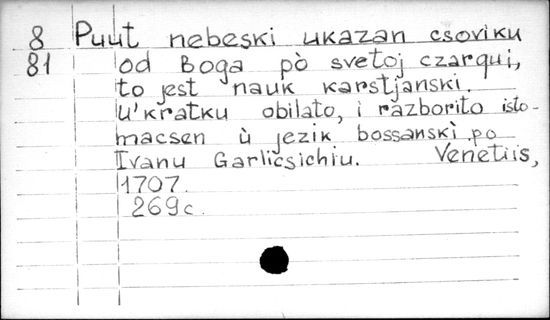 8 Puut nebeski ukazan csoviku
81 od Boga pò svetoj czarqui,
to jest nauk karstjanski.
U'kratku obilato, i razborito isto-
macsen ù jezik bossanskì po
Ivanu Garlicsichiu. Venetiis,
1707.
269 c.